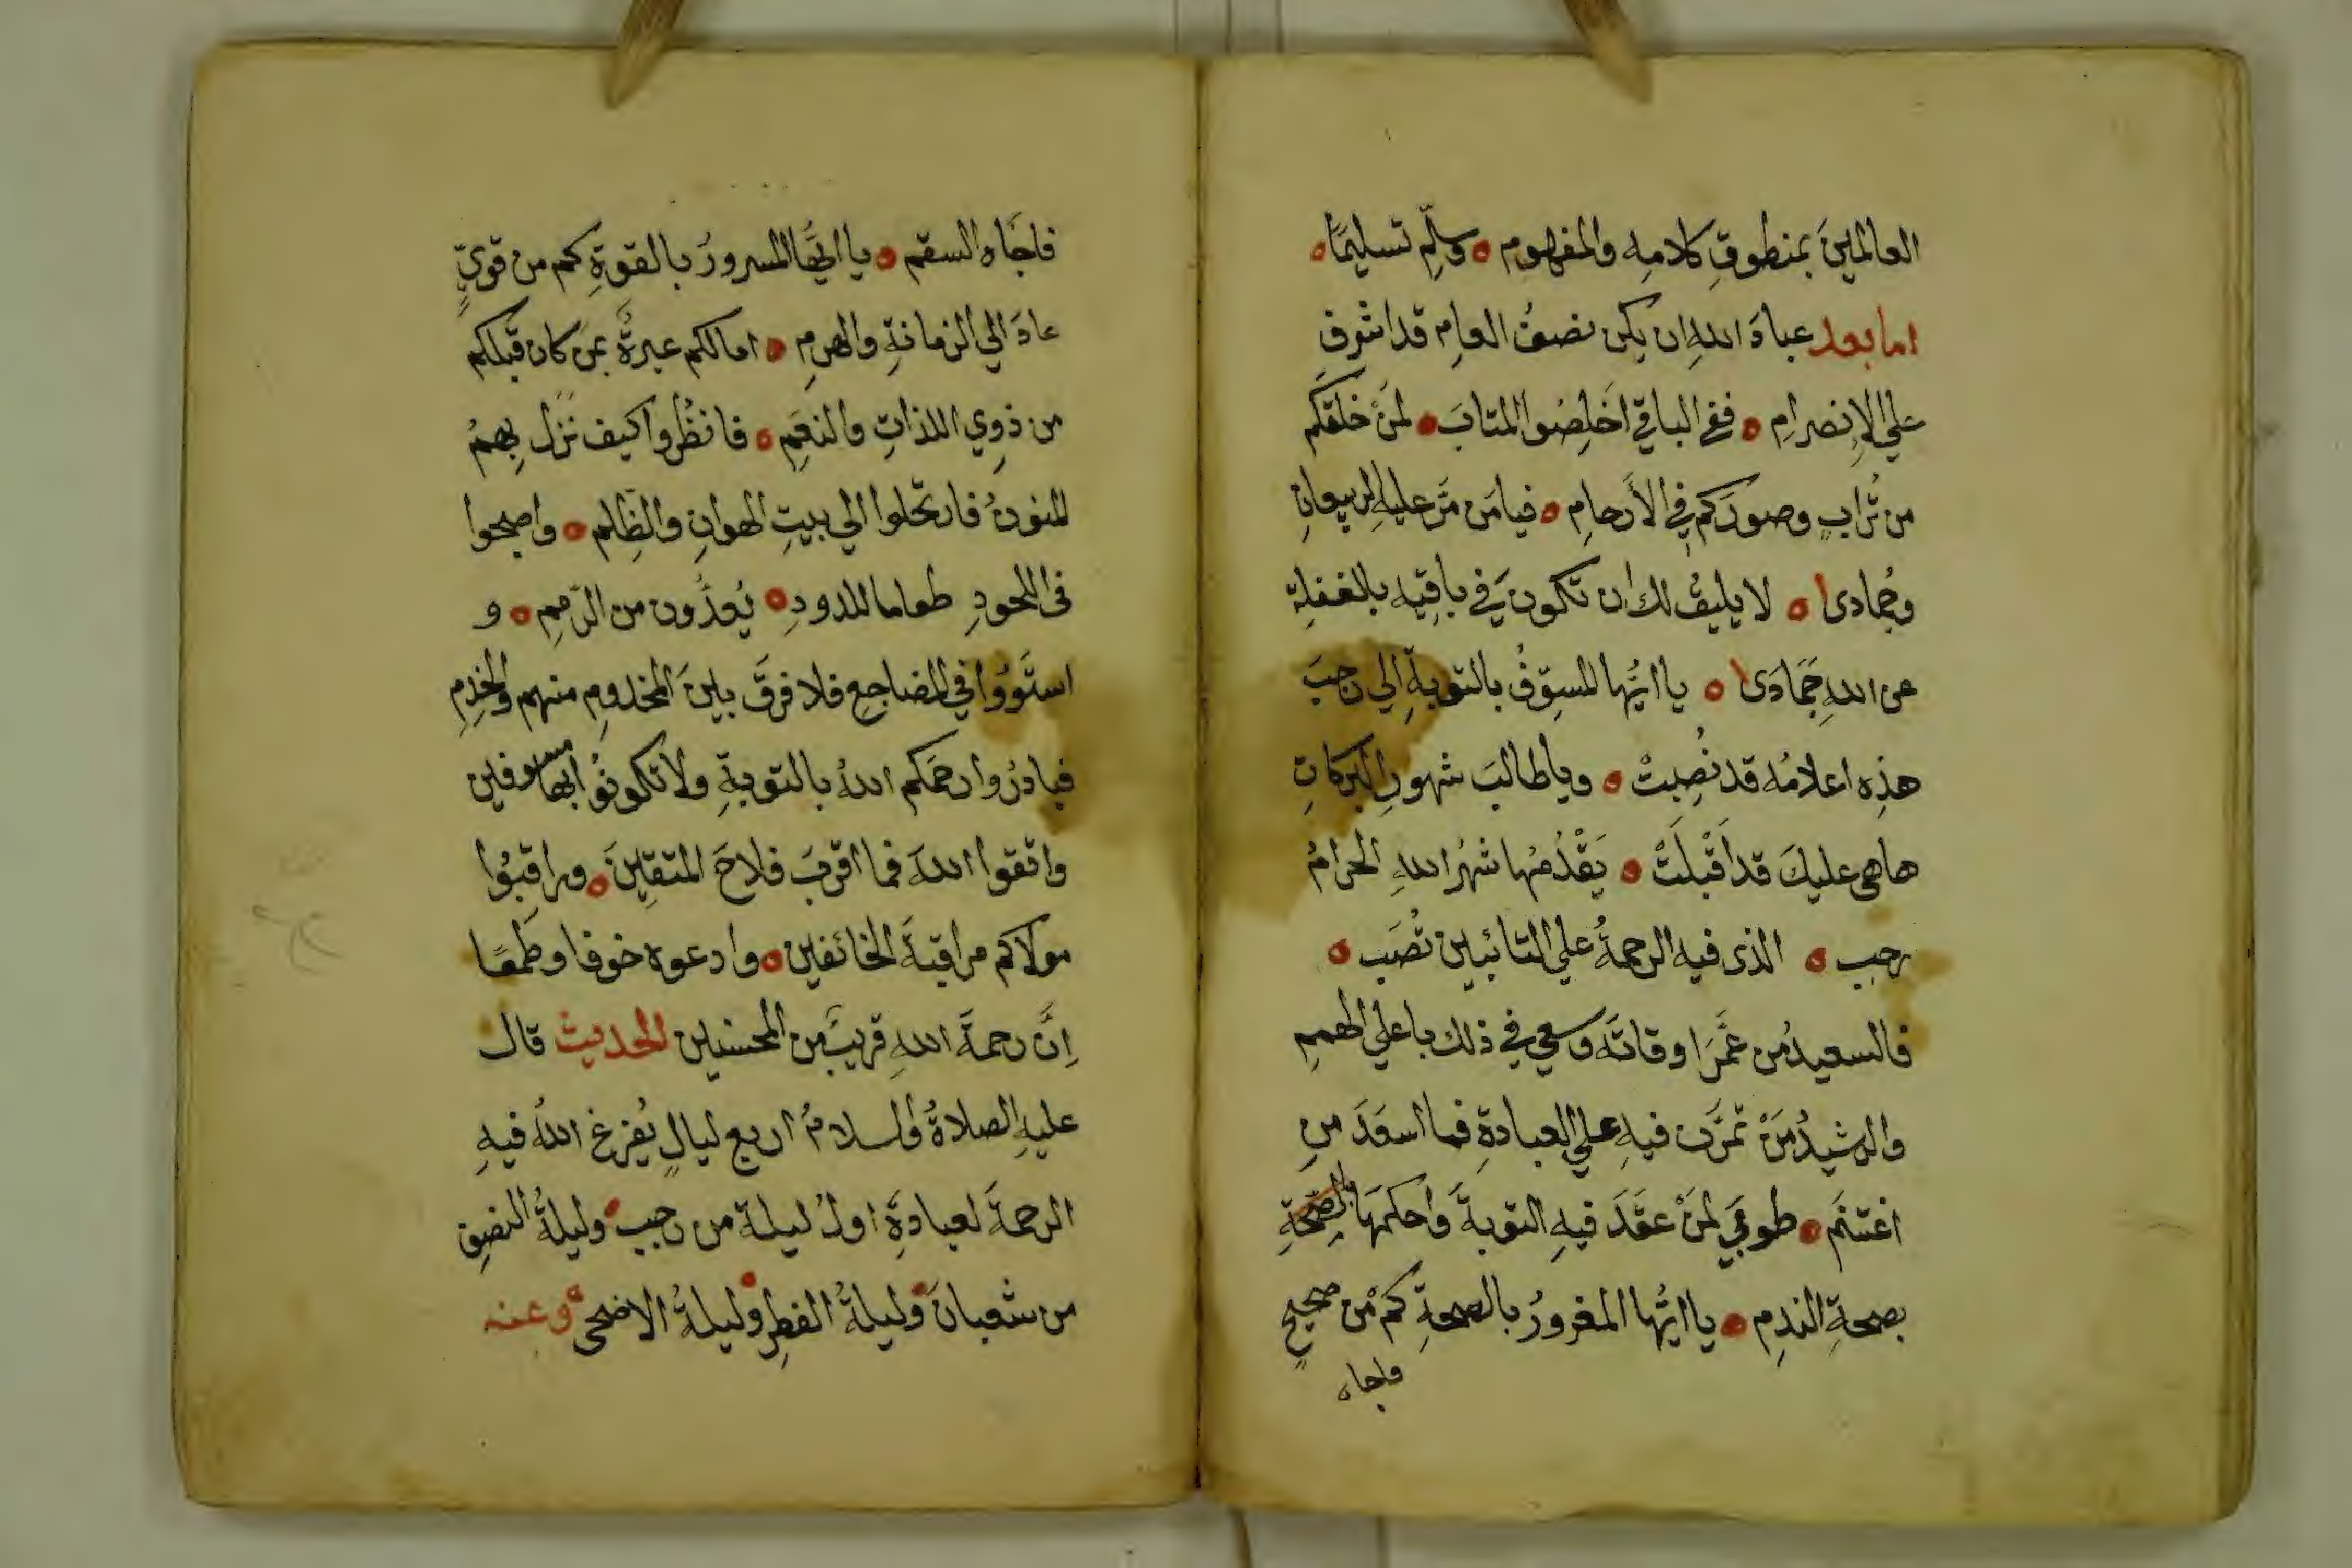 العالمينَ بمنطوقِ كلامِهِ والمفهومِ ه وسلِّم تسليمًا ه
اما بعد عبادَ اللهِ ان يكن نصفُ العامِ قد اشرف
علي الإنصرامِ ه ففي الباقي اخلِصُوا المتابَ ه لمَنْ خلقكم
من تُرابٍ وصورَكم في الأرحامِ ه فيامَن مَرَّ عليهِ الربيعانِ
وجُمادى ه لا يليقُ لك ان تكونَ في باقِيهِ بالغفلةِ
عن اللهِ جَمَادَى ه يا ايُّها المسوِّفُ بالتوبةِ الي رجبَ
هذِه اعلامُه قد نُصِبتْ ه ويا طالبَ شهورِ البركاتِ
ها هى عليكَ قد اَقْبَلَتْ ه يَقْدُمُها شهرُ اللهِ الحرامُ
رجب ه الذى فيه الرحمةُ علي التائبين تُصَب ه
فالسعيدُ من عَمَّرَ اوقاتَه وسعي في ذلك باعلي الهممِ
والرشيدُ مَنْ تمرَّن فيهِ علي العبادةِ فما اسعَدَ منِ
اغتنَم ه طوبي لمَنْ عقَدَ فيهِ التوبةَ واحكمَها
بصحةِ الندمِ ه يا ايُّها المغرورُ بالصحةِ كمْ من صحيحٍ
فاجاه
فاجَاه السقم ه يا ايُّها المسرورُ بالقوةِ كم من قويٍّ
عادَ الي الزمانةِ والهرمِ ه امالكم عبرةٌ بمَن كان قَبلكم
من ذوِي اللذاتِ والنعَمِ ه فانظُروا كيف نَزل بِهمُ
المنونُ فارتحلوا الي بيتِ الهوانِ والظلَم ه واصبحوا
فى اللحودِ طعاما للدودِ ه يُعدُّون من الرِّممِ ه و
استَوَوُا في المضاجعِ فلا فرقَ بينَ المخدومِ منهم والخدمِ
فبادرُوا رحمَكم اللهُ بالتوبةِ ولا تكونُوا بها مسوفين
واتقوا اللهَ فما اقربَ فلاحَ المتقِينَ ه وراقبُوا
مولاكم مراقبةَ الخائفين ه وادعوه خوفا وطَمعًا
اِنَّ رحمةَ اللهِ قريبٌ من المحسنين الحديث قال
عليهِ الصلاةُ والسلامُ اربع ليالٍ يُفرغ اللهُ فيهِ
الرحمةَ لعبادةِ اولُ ليلة من رجب ه وليلةُ النصفِ
من شعبانَ ه وليلةُ الفطرِ ه وليلةُ الاضحى ه وعنه